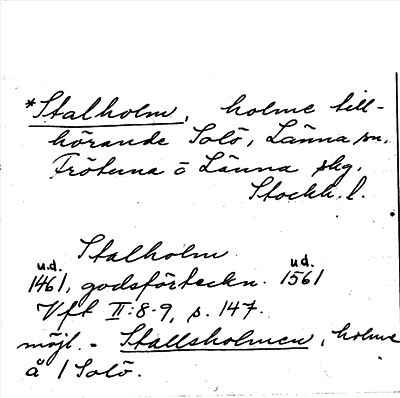 *Stalholm, holme till-
hörande Solö, Länna sn,
Frötuna o Länna skg.
Stockh. l.
Stalholm
u.d. u.d.
1461, godsförteckn. 1561
Vft II:8-9, s. 147.
möjl. = Stallsholmen, holme
å / Solö.